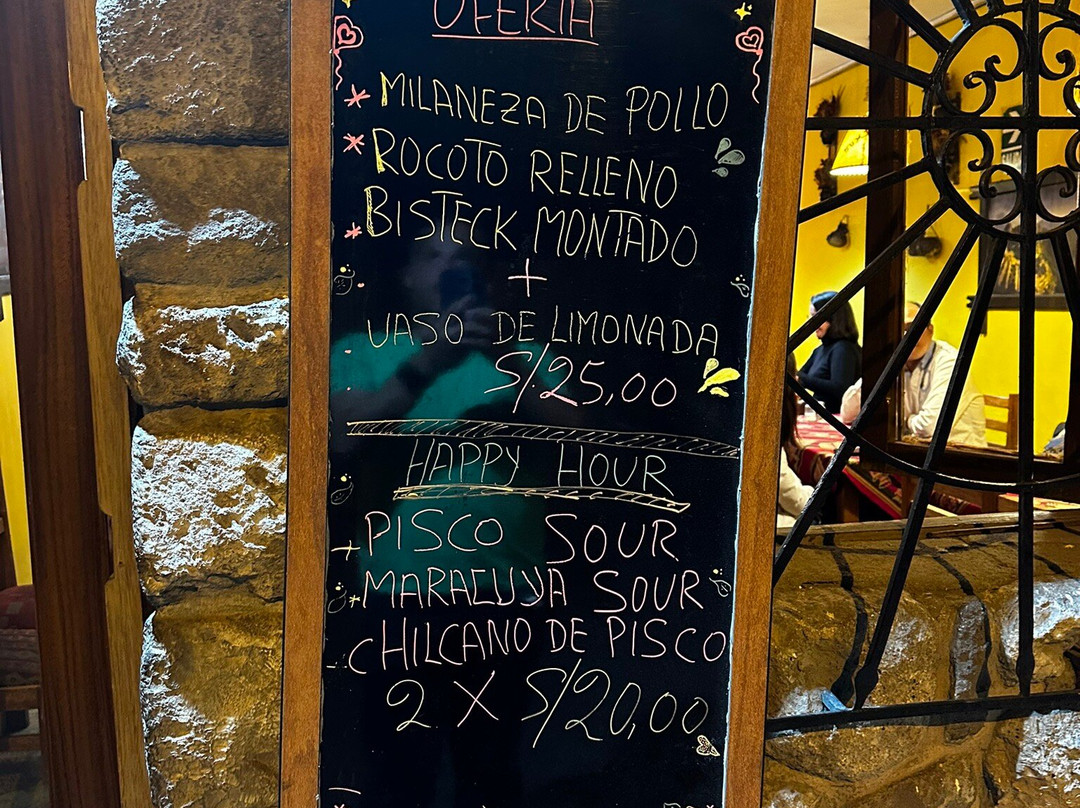 OFERTA
* MILANEZA DE POLLO
* ROCOTO RELLENO
* BISTECK MONTADO
+
VASO DE LIMONADA
S/.25,00
HAPPY HOUR
+ PISCO SOUR
* MARACUYA SOUR
- CHILCANO DE PISCO
2 X S/20,00